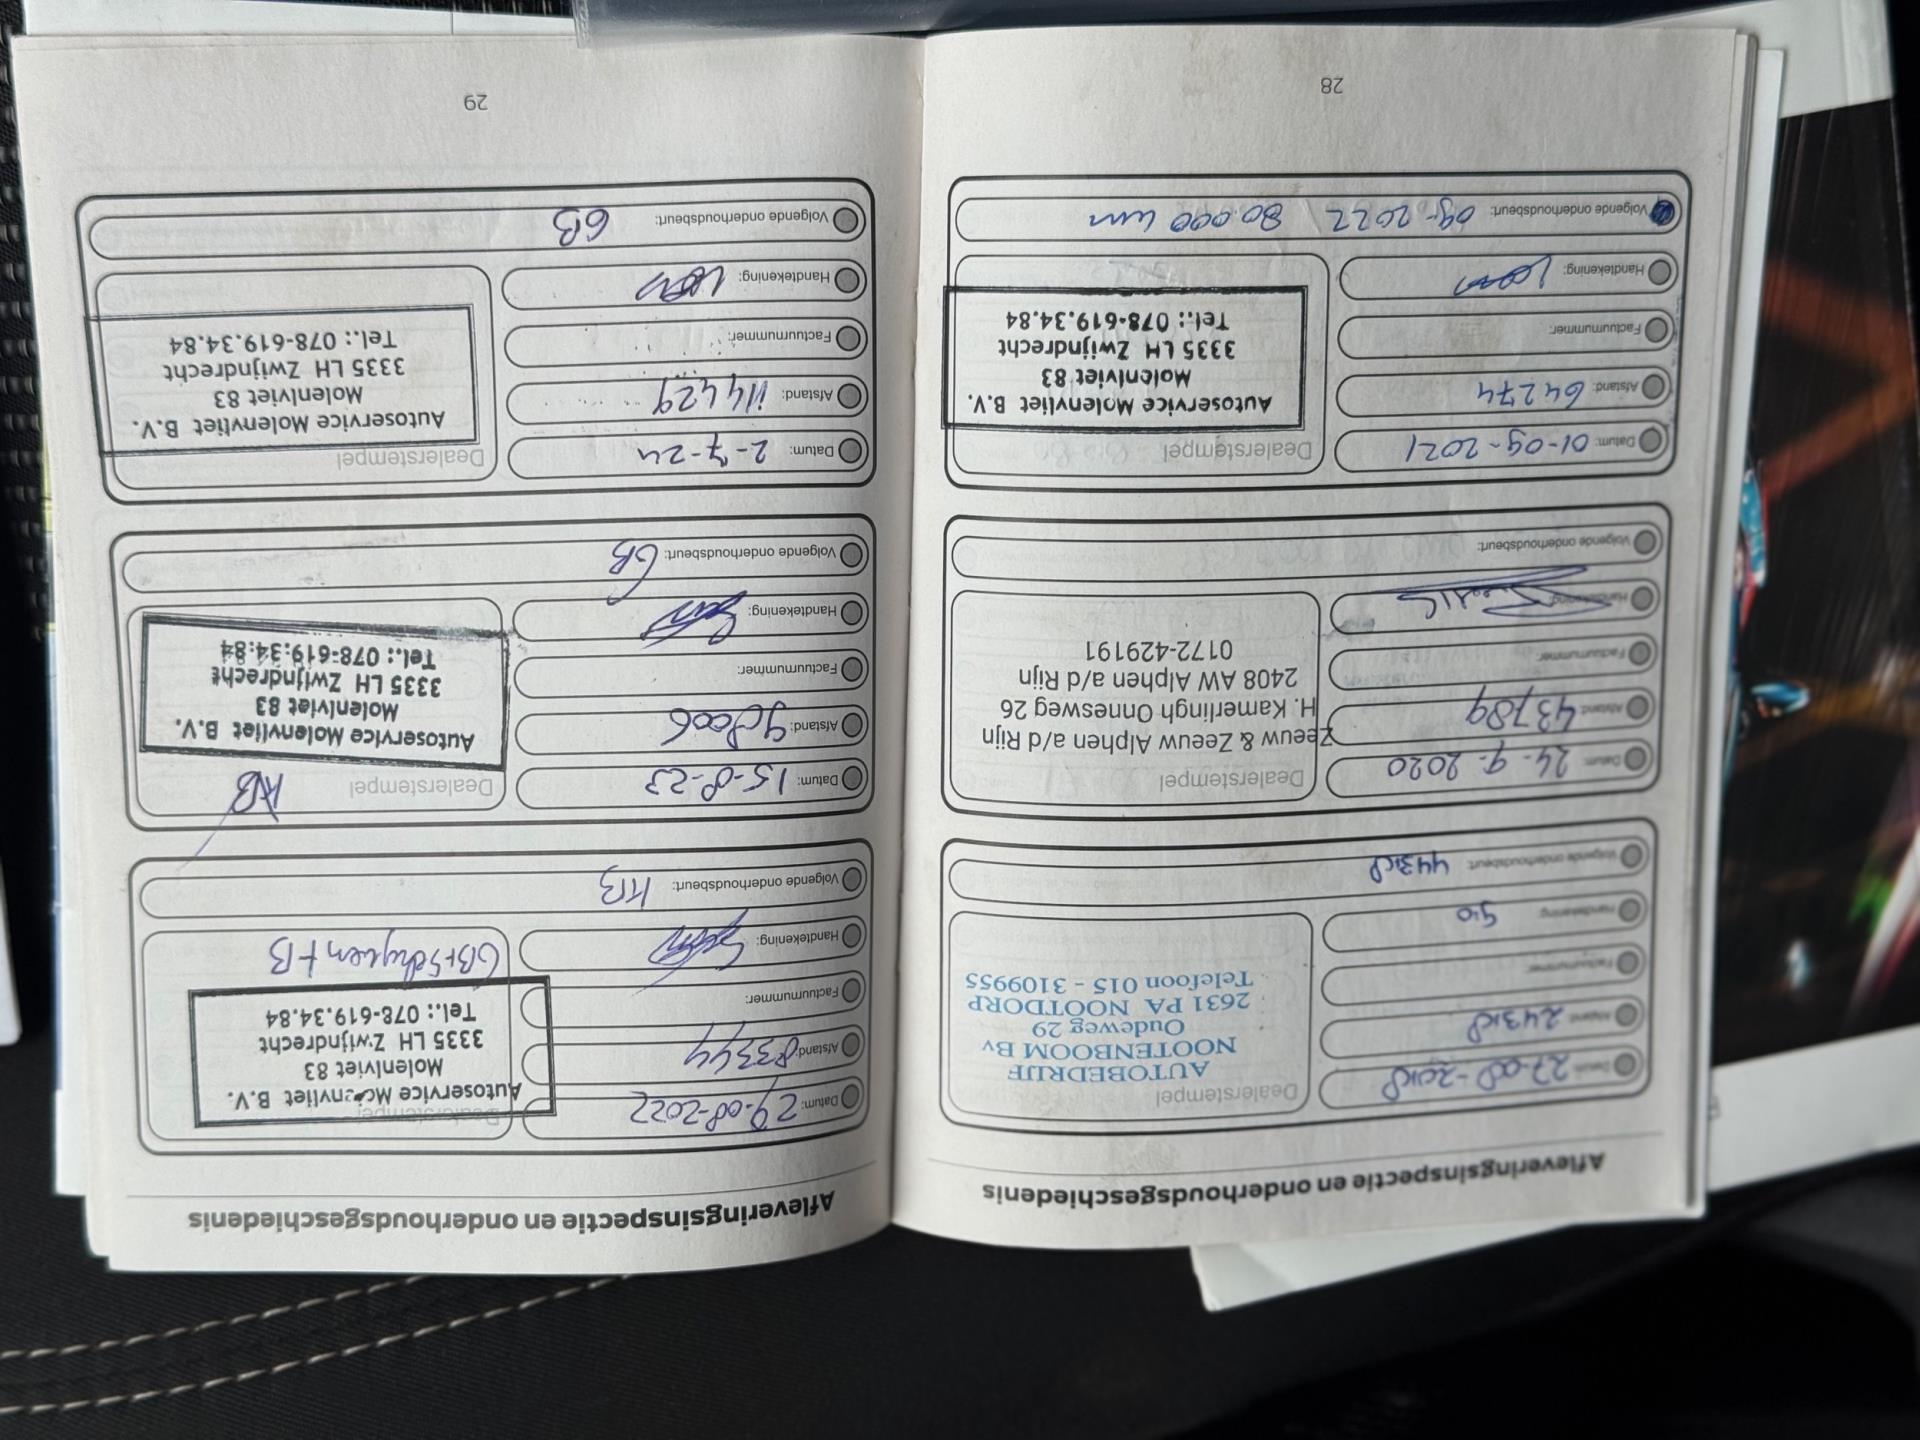 Afleveringsinspectie en onderhoudsgeschiedenis
Datum: 27-08-2018
Afstand: 24318
Factuurnummer:
Handtekening: gio
Volgende onderhoudsbeurt: 44318
Dealerstempel
AUTOBEDRIJF
NOOTENBOOM BV
Oudeweg 29
2631 PA NOOTDORP
Telefoon 015 - 3109955
Datum: 24-9-2020
Afstand: 43789
Factuurnummer:
Handtekening:
Volgende onderhoudsbeurt:
Dealerstempel
Zeeuw & Zeeuw Alphen a/d Rijn
H. Kamerlingh Onnesweg 26
2408 AW Alphen a/d Rijn
0172-429191
Datum: 01-09-2021
Afstand: 64274
Factuurnummer:
Handtekening:
Volgende onderhoudsbeurt: 09-2022 / 80.000 km
Dealerstempel
Autoservice Molenvliet B.V.
Molenvliet 83
3335 LH Zwijndrecht
Tel.: 078-619.34.84
28
Afleveringsinspectie en onderhoudsgeschiedenis
Datum: 29-08-2022
Afstand: 83344
Factuurnummer:
Handtekening:
Volgende onderhoudsbeurt: HB
Dealerstempel
Autoservice Molenvliet B.V.
Molenvliet 83
3335 LH Zwijndrecht
Tel.: 078-619.34.84
GB+Schijven + B
Datum: 15-8-23
Afstand: 98006
Factuurnummer:
Handtekening:
Volgende onderhoudsbeurt: GB
Dealerstempel
HB
Autoservice Molenvliet B.V.
Molenvliet 83
3335 LH Zwijndrecht
Tel.: 078-619:34:84
Datum: 2-7-24
Afstand: 114429
Factuurnummer:
Handtekening:
Volgende onderhoudsbeurt: GB
Dealerstempel
Autoservice Molenvliet B.V.
Molenvliet 83
3335 LH Zwijndrecht
Tel.: 078-619.34.84
29